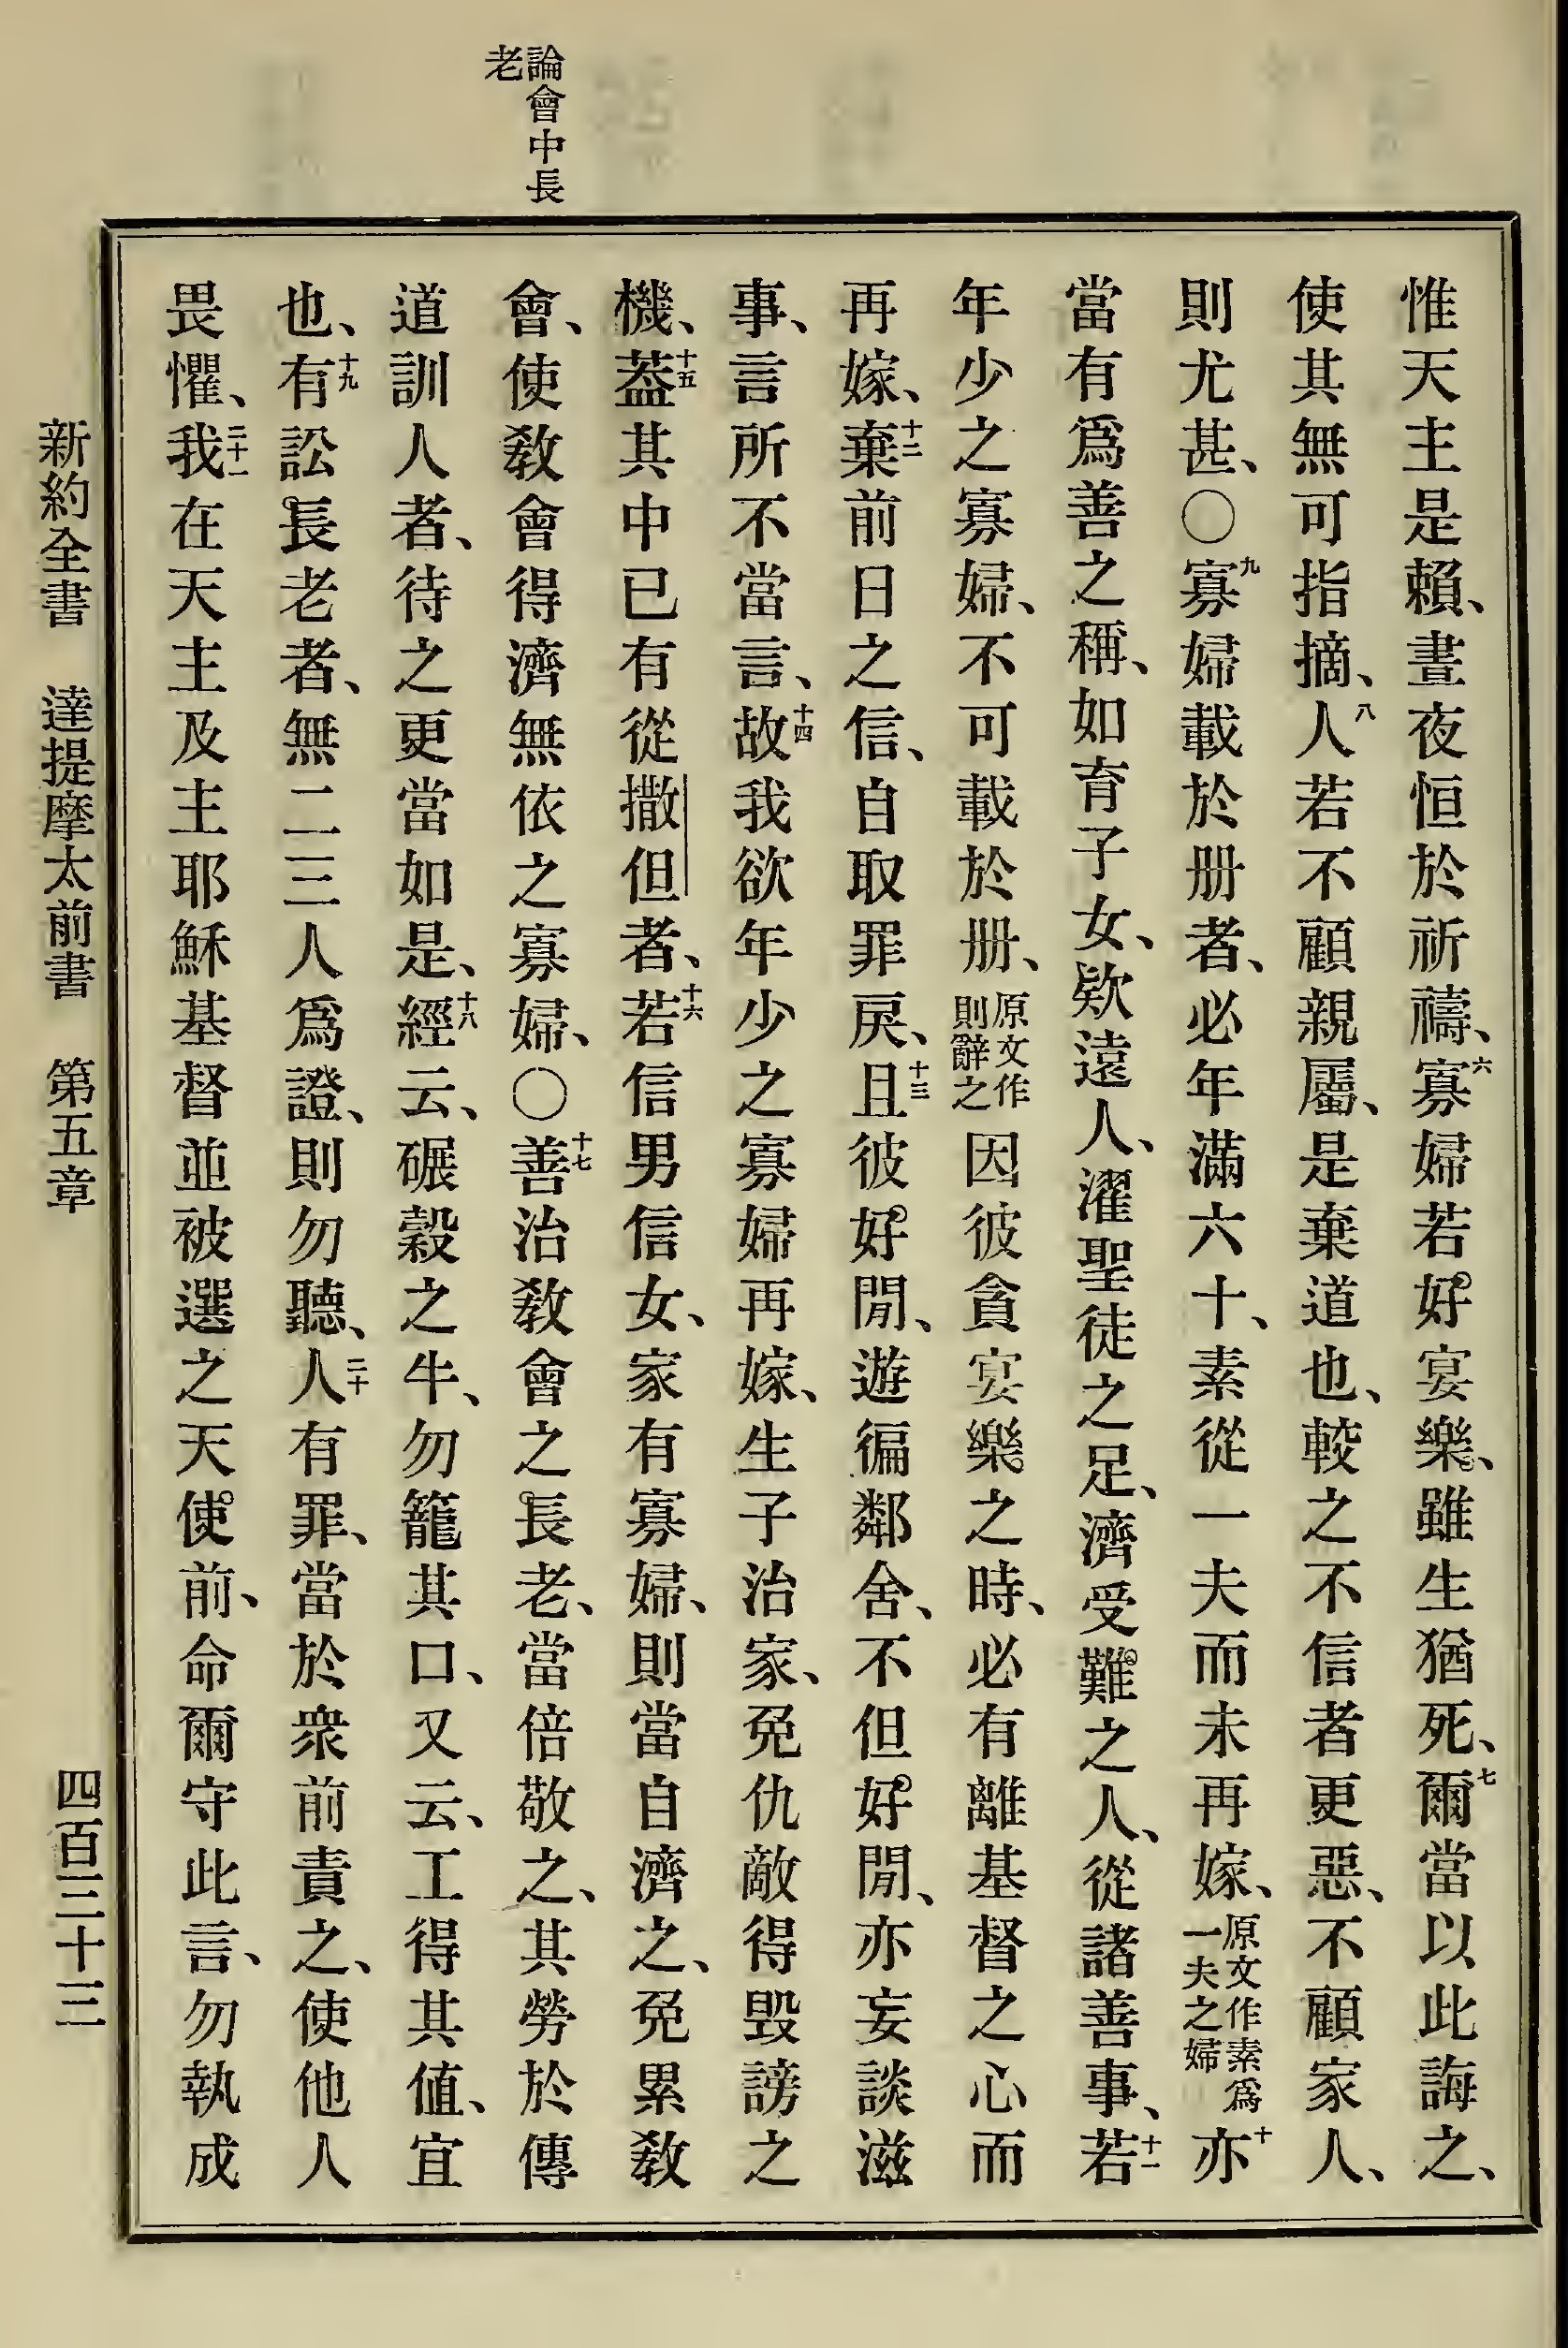 論會中長
老
惟天主是賴、晝夜恒於祈禱、六寡婦若好宴樂、雖生猶死、七爾當以此誨之、
使其無可指摘、八人若不顧親屬、是棄道也、較之不信者更惡、不顧家人、
則尤甚、〇九寡婦載於册者、必年滿六十、素從一夫而未再嫁、原文作素爲一夫之婦十亦
當有爲善之稱、如育子女、欵遠人、濯聖徒之足、濟受難之人、從諸善事、十一若
年少之寡婦、不可載於册、原文作則辭之因彼貪宴樂之時、必有離基督之心而
再嫁、十二棄前日之信、自取罪戾、十三且彼好閒、遊徧鄰舍、不但好閒、亦妄談滋
事、言所不當言、十四故我欲年少之寡婦再嫁、生子治家、免仇敵得毀謗之
機、十五葢其中已有從撒但者、十六若信男信女、家有寡婦、則當自濟之、免累教
會、使教會得濟無依之寡婦、〇十七善治教會之長老、當倍敬之、其勞於傳
道訓人者、待之更當如是、十八經云、碾穀之牛、勿籠其口、又云、工得其値、宜
也、十九有訟長老者、無二三人爲證、則勿聽、二十人有罪、當於衆前責之、使他人
畏懼、二十一我在天主及主耶穌基督並被選之天使前、命爾守此言、勿執成
新約全書 達提摩太前書 第五章 四百三十三